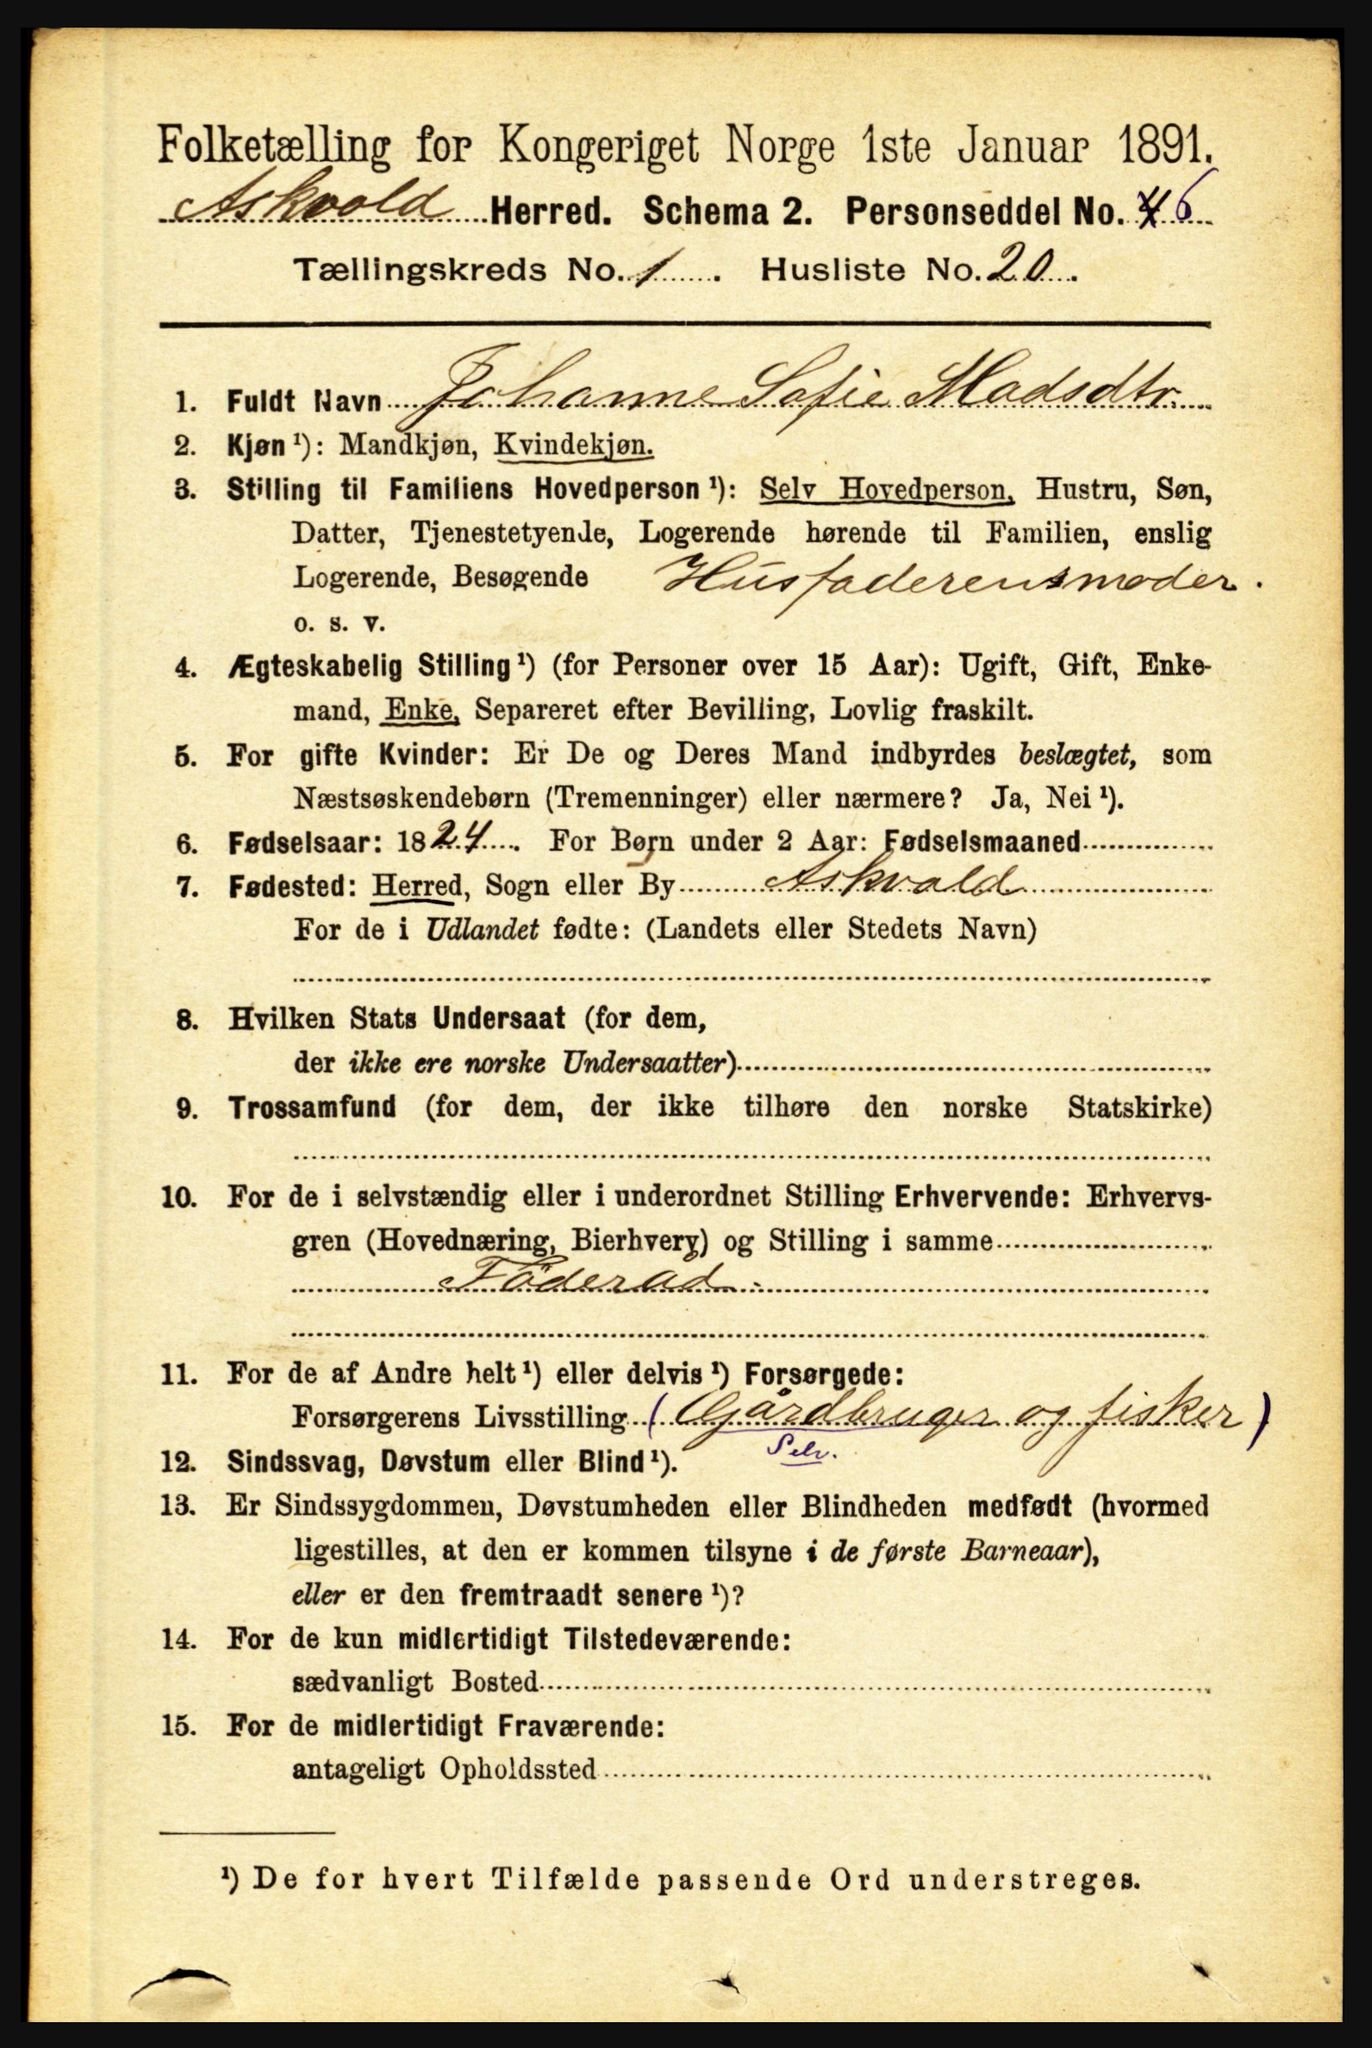 Folketælling for Kongeriget Norge 1ste Januar 1891.
Askvold Herred. Schema 2. Personseddel No. 4 6
Tællingskreds No. 1. Husliste No. 20.
1. Fuldt Navn Johanne Sofie Madsdtr.
2. Kjøn ¹): Mandkjøn, Kvindekjøn.
3. Stilling til Familiens Hovedperson ¹): Selv Hovedperson, Hustru, Søn,
Datter, Tjenestetyende, Logerende hørende til Familien, enslig
Logerende, Besøgende Husfaderens moder.
o. s. v.
4. Ægteskabelig Stilling ¹) (for Personer over 15 Aar): Ugift, Gift, Enke-
mand, Enke, Separeret efter Bevilling, Lovlig fraskilt.
5. For gifte Kvinder: Er De og Deres Mand indbyrdes beslægtet, som
Næstsøskendebørn (Tremenninger) eller nærmere? Ja, Nei ¹).
6. Fødselsaar: 1824. For Børn under 2 Aar: Fødselsmaaned
7. Fødested: Herred, Sogn eller By Askvold
For de i Udlandet fødte: (Landets eller Stedets Navn)
8. Hvilken Stats Undersaat (for dem,
der ikke ere norske Undersaatter)
9. Trossamfund (for dem, der ikke tilhøre den norske Statskirke)
10. For de i selvstændig eller i underordnet Stilling Erhvervende: Erhvervs-
gren (Hovednæring, Bierhverv) og Stilling i samme
Föderåd.
11. For de af Andre helt ¹) eller delvis ¹) Forsørgede:
Forsørgerens Livsstilling (Gårdbruger og fisker)
Selv.
12. Sindssvag, Døvstum eller Blind ¹).
13. Er Sindssygdommen, Døvstumheden eller Blindheden medfødt (hvormed
ligestilles, at den er kommen tilsyne i de første Barneaar),
eller er den fremtraadt senere ¹)?
14. For de kun midlertidigt Tilstedeværende:
sædvanligt Bosted
15. For de midlertidigt Fraværende:
antageligt Opholdssted
¹) De for hvert Tilfælde passende Ord understreges.